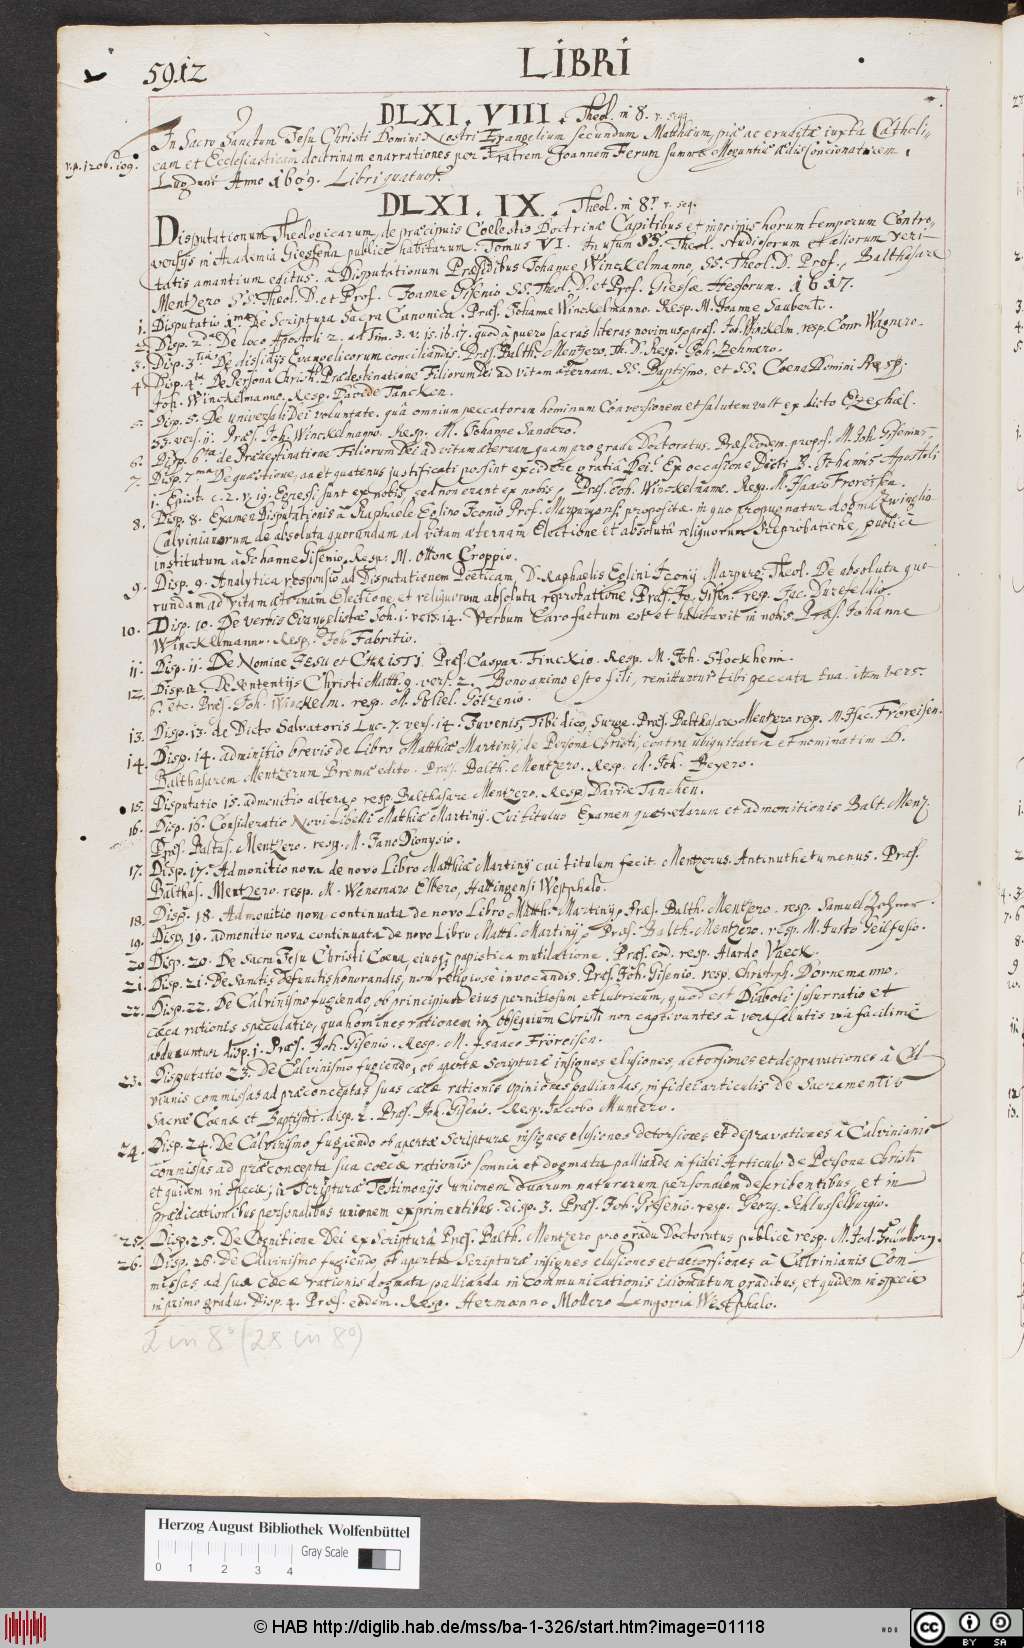 5912
LIBRI
DLXI. VIII. Theol. in 8. v. seq.
In Sacro Sanctum Jesu Christi Domini Nostri Evangelium secundum Matthaeum, piae ac eruditae iuxta Catholi-
v. p. 1206. 109.
cam et Ecclesiasticam doctrinam enarrationes per Fratrem Joannem Ferum summae Moguntiae aedis Concionatorem.
Lugduni Anno 1609. Libri quatuor.
DLXI. IX. Theol. in 8.° v. seq.
Disputationum Theologicarum, de praecipuis Coelestis Doctrinae Capitibus et inprimis horum temporum Contro-
versijs in Academia Giessena publicè habitarum. Tomus VI. In usum SS. Theol. studiosorum et aliorum veri-
tatis amantium editus. à Disputationum Praesidibus Johanne Winckelmanno, SS. Theol. D. Prof. Balthasare
Mentzero SS. Theol. D. et Prof. Joanne Gisenio SS. Theol. D. et Prof. Giessae Hessorum. 1617.
1. Disputatio 1.ma De Scriptura Sacra Canonica. Praes. Johanne Winckelmanno. Resp. M. Joanne Sauberto.
2. Disp. 2.da De loco Apostoli 2. ad Tim. 3. v. 15. 16. 17. quod à puero sacras literas novimus, praes. Joh. Winckelm. resp. Conr. Wagnero.
3. Disp. 3.tia De dissidijs Evangelicorum conciliandis. Praes. Balth. Mentzero, Th. D. Resp. Joh. Zehnero.
4. Disp. 4.ta De Persona Christi, Praedestinatione Filiorum Dei ad vitam aeternam. SS. Baptismo. et SS. Coena Domini Praesp.
Joh. Winckelmanno. Resp. Davide Tancken.
5. Disp. 5. De universali Dei voluntate. quâ omnium peccatorum hominum Conversionem et salutem vult ex dicto Ezechiel.
33. vers. 11. Praes. Joh. Winckelmanno. Resp. M. Johanne
6. Disp. 6.ta de Praedestinatione Filiorum Dei ad vitam aeternam, quam pro gradu Doctoratus. Praes. eodem. propos. M. Joh. Gisenius.
7. Disp. 7.ma De quaestione, an et quatenus iustificati possint excidere gratia Dei? Ex occasione Dicti B. Johannis Apostoli
1. Epist. c. 2. v. 19. Egressi sunt ex nobis, sed non erant ex nobis. Praes. Joh. Winckelmanno. Resp. M. Isaac Froreisen.
8. Disp. 8. Examen Disputationis à Raphaele Eglino Iconio Prof. Marpurgensi propositae in quo propugnatur dogma Zwinglio
Calvinianorum de absoluta quorundam ad vitam aeternam Electione et absoluta reliquorum Reprobatione, publicè
institutum à Johanne Gisenio, Resp. M. Ottone Croppio.
9. Disp. 9. Analytica responsio ad Disputationem Poeticam, D. Raphaelis Eglini Iconij Marpurg. Theol. De absoluta quo-
rundam ad vitam aeternam Electione, et reliquorum absoluta reprobatione. Praes. Jo. Gisen. resp. Jac. Durefeldio.
10. Disp. 10. De verbis Evangelistae Joh. 1. vers. 14. Verbum Caro factum est et habitavit in nobis. Praes. Johanne
Winckelmanno. Resp. Joh. Fabritio.
11. Disp. 11. De Nomine JESU et CHRISTI. Praes. Caspar Finckio. Resp. M. Joh. Stockheim.
12. Disp. 12. De Sententijs Christi Matth. 9. vers. 2. Bono animo esto fili, remittuntur tibi peccata tua. item vers.
6. etc. Praes. Joh. Winckelm. resp. M. Götzenio.
13. Disp. 13. de Dicto Salvatoris Luc. 7. vers. 14. Juvenis, Tibi dico, Surge. Praes. Balthasare Mentzero resp. M. Isac. Fröreisen.
14. Disp. 14. adminitio brevis de Libro Matthiae Martinij, de Persona Christi, contra ubiquitatem et nominatim D.
Balthasarem Mentzerum Bremae edito. Praes. Balth. Mentzero. Resp. M. Joh. Beyero.
15. Disputatio 15. admonitio altera, resp. Balthasare Mentzero. Resp. Davide Tancken.
16. Disp. 16. Consideratio Novi Libelli Mathiae Martinij. Cui titulus Examen querelarum et admonitionis Balt. Mentz.
Praes. Baltas. Mentzero. resp. M. Jano Dionysio.
17. Disp. 17. Admonitio nova de novo Libro Matthiae Martinij cui titulum fecit, Mentzerus Antinuthetumenus. Praes.
Balthas. Mentzero. resp. M. Wenemaro Elbero, Hattingensi Westphalo.
18. Disp. 18. Admonitio nova continuata de novo Libro Matth. Martinij, Praes. Balth. Mentzero. resp. Samuel Zehner.
19. Disp. 19. admonitio nova continuata de novo Libro Matth. Martinij, Praes. Balth. Mentzero. resp. M. Justo Geilfusio.
20. Disp. 20. De Sacra Jesu Christi Coena, eiusq; papistica mutilatione, Praes. eod. resp. Alardo Vaeck.
21. Disp. 21. De Sanctis Defunctis honorandis, non religiosè invocandis. Praes. Joh. Gisenio. resp. Christoph. Dornemanno.
22. Disp. 22. De Calvinismo fugiendo, ob principium eius pernitiosum et lubricum, quod est Diaboli susurratio et
caeca rationis speculatio, qua homines rationem in obsequium Christi non captivantes à vera salutis via facilimè
abducuntur disp. 1. Praes. Joh. Gisenio. Resp. M. Isaaco Fröreisen.
23. Disputatio 23. De Calvinismo fugiendo, ob apertae Scripturae insignes elusiones, detorsiones et depravationes à Cal-
vinianis commissas ad praeconceptas suas caecae rationis opiniones palliandas, in fidei articulis de Sacramentis
Sacrae Coenae et Baptismi. disp. 2. Praes. Joh. Gisenio. Resp. Jacobo Muntero.
24. Disp. 24. De Calvinismo fugiendo ob apertae Scripturae insignes elusiones detorsiones et depravationes à Calvinianis
commissas ad praeconcepta sua coecae rationis somnia et dogmata pallianda in fidei Articulo de Persona Christi
et quidem in specie, in Scripturae Testimonijs unionem duarum naturarum personalem describentibus, et in
praedicationibus personalibus unionem exprimentibus. disp. 3. Praes. Joh. Gisenio. resp. Georg. Schlusselburgio.
25. Disp. 25. De Cognitione Dei ex Scriptura Praes. Balth. Mentzero pro gradu Doctoratus publicè resp. M. Joh.
26. Disp. 26. De Calvinismo fugiendo, ob apertae Scripturae insignes elusiones et detorsiones à Calvinianis Com-
missas, ad sua caecae rationis dogmata pallianda in communicationis idiomatum gradibus, et quidem in specie
in primo gradu. Disp. 4. Praes. eodem. Resp. Hermanno Mollero Lemgovia Westphalo.
2 in 8° (28 in 8°)
Herzog August Bibliothek Wolfenbüttel
Gray Scale
0 1 2 3 4
© HAB http://diglib.hab.de/mss/ba-1-326/start.htm?image=01118
CC BY SA